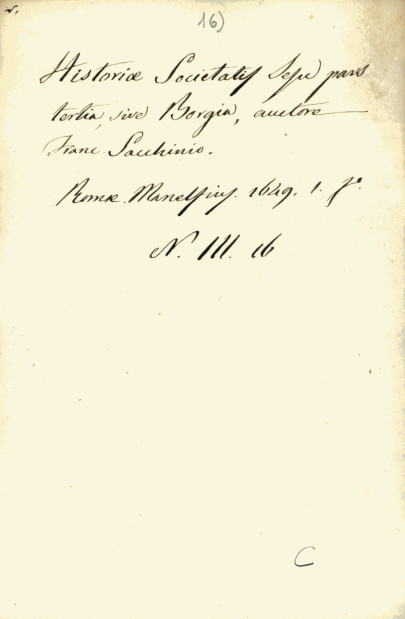 16)
Historiæ Societatis Jesu pars
tertia, sive Borgia, auctore
Franc. Sacchinio.
Romæ. Manelfius. 1649. 1. fº.
N. III. 16
C